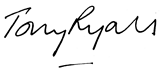 Tony Ryals